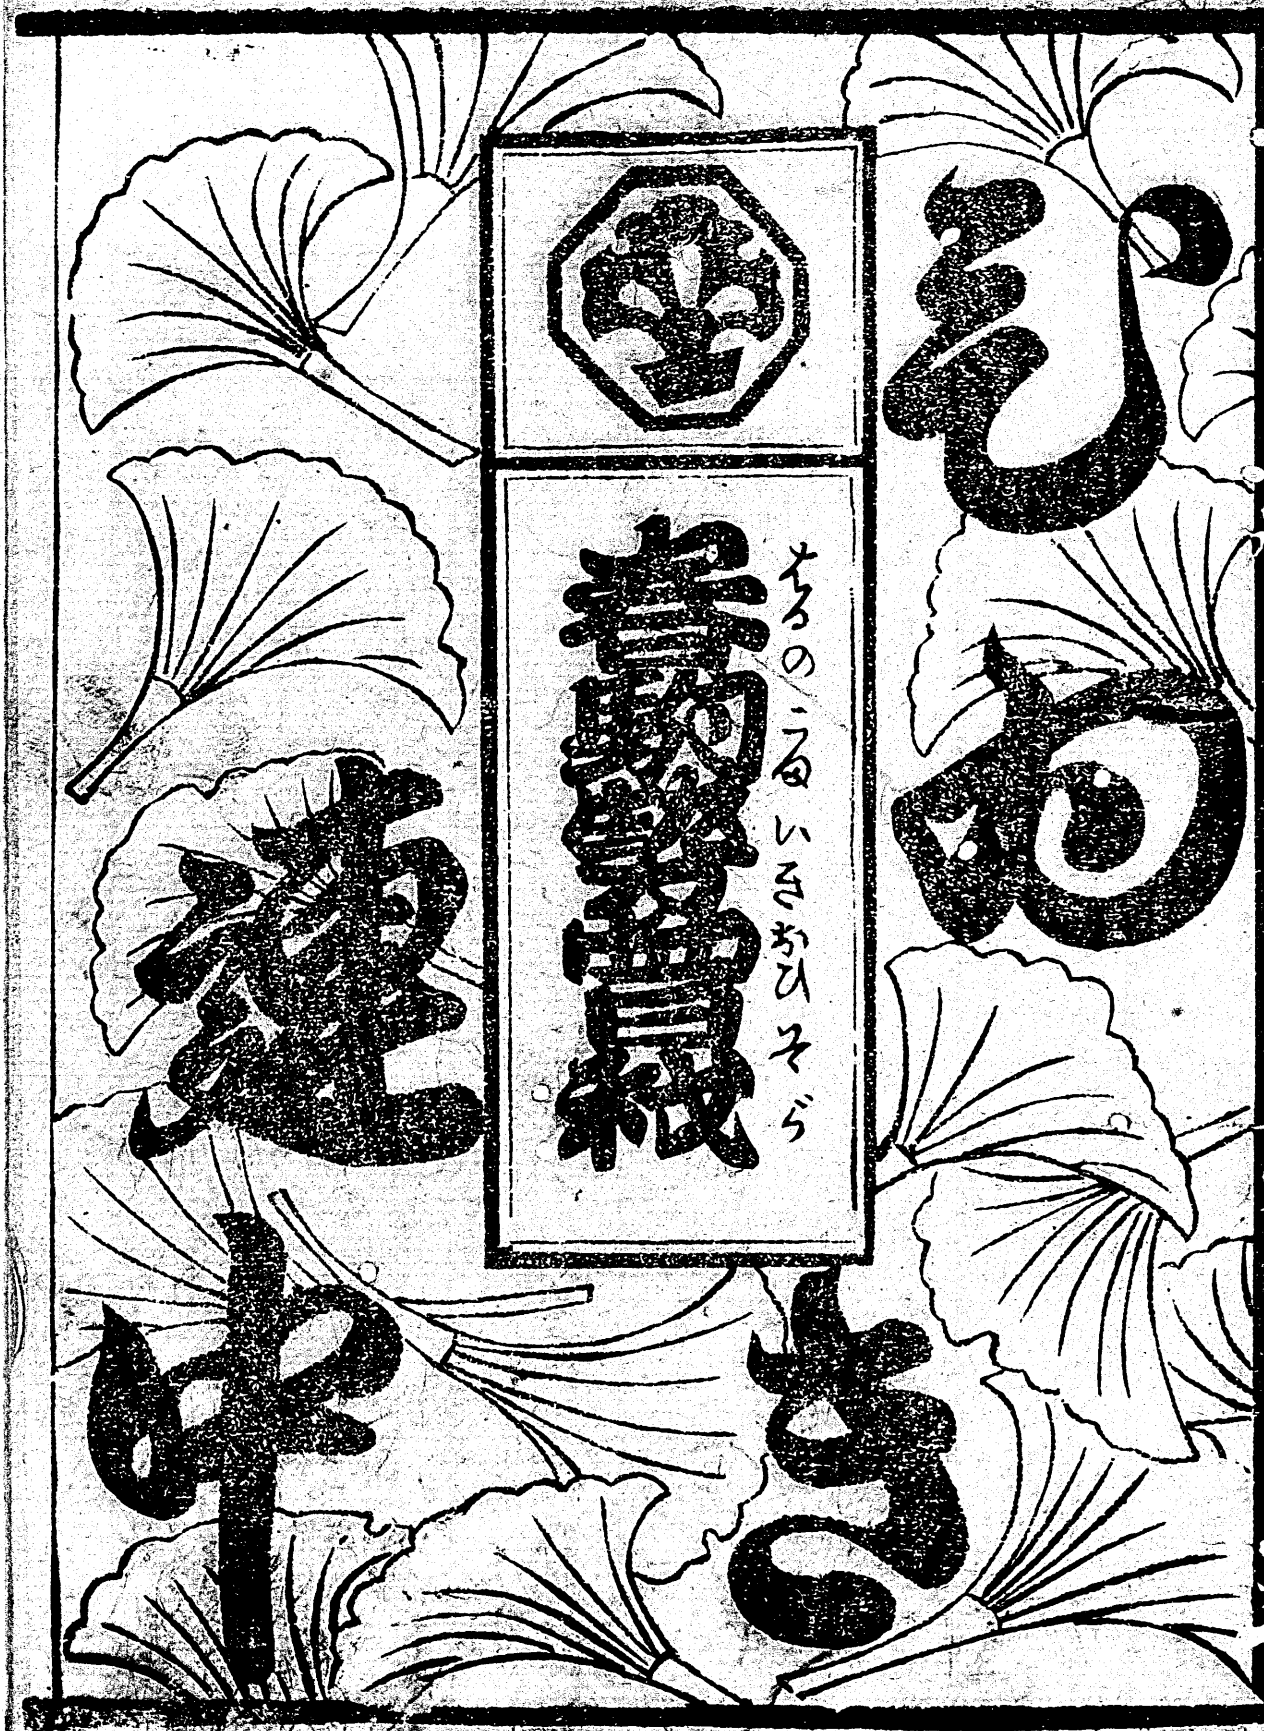 ひゐき
はるのこまいきおひそが
春駒勢曽我
連中